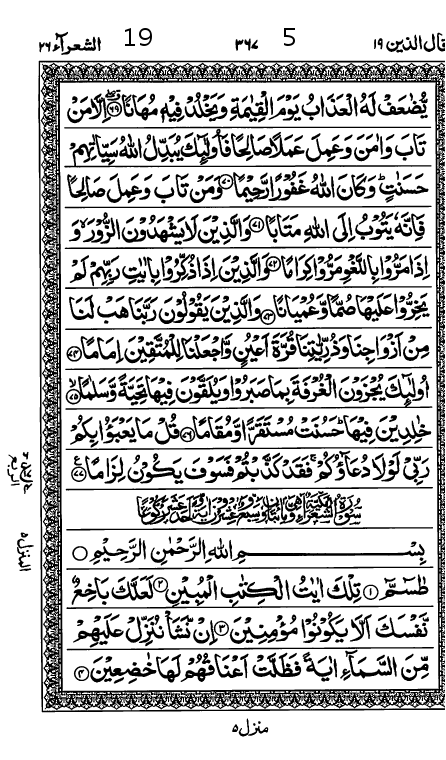 قال الذین ۱۹ 5 ۳۶۷ 19 الشعرآء ۲۶
یُّضٰعَفْ لَهُ الْعَذَابُ یَوْمَ الْقِیٰمَةِ وَیَخْلُدْ فِیْهٖ مُهَانًا ۶۹ اِلَّا مَنْ
تَابَ وَاٰمَنَ وَعَمِلَ عَمَلًا صَالِحًا فَاُولٰٓئِكَ یُبَدِّلُ اللّٰهُ سَیِّاٰتِهِمْ
حَسَنٰتٍ ؕ وَكَانَ اللّٰهُ غَفُوْرًا رَّحِیْمًا ۷۰ وَمَنْ تَابَ وَعَمِلَ صَالِحًا
فَاِنَّهٗ یَتُوْبُ اِلَی اللّٰهِ مَتَابًا ۷۱ وَالَّذِیْنَ لَا یَشْهَدُوْنَ الزُّوْرَ ۙ وَ
اِذَا مَرُّوْا بِاللَّغْوِ مَرُّوْا كِرَامًا ۷۲ وَالَّذِیْنَ اِذَا ذُكِّرُوْا بِاٰیٰتِ رَبِّهِمْ لَمْ
یَخِرُّوْا عَلَیْهَا صُمًّا وَّعُمْیَانًا ۷۳ وَالَّذِیْنَ یَقُوْلُوْنَ رَبَّنَا هَبْ لَنَا
مِنْ اَزْوَاجِنَا وَذُرِّیّٰتِنَا قُرَّةَ اَعْیُنٍ وَّاجْعَلْنَا لِلْمُتَّقِیْنَ اِمَامًا ۷۴
اُولٰٓئِكَ یُجْزَوْنَ الْغُرْفَةَ بِمَا صَبَرُوْا وَیُلَقَّوْنَ فِیْهَا تَحِیَّةً وَّسَلٰمًا ۷۵
خٰلِدِیْنَ فِیْهَا ؕ حَسُنَتْ مُسْتَقَرًّا وَّمُقَامًا ۷۶ قُلْ مَا یَعْبَؤُا بِكُمْ
رَبِّیْ لَوْلَا دُعَآؤُكُمْ ۚ فَقَدْ كَذَّبْتُمْ فَسَوْفَ یَكُوْنُ لِزَامًا ۷۷
بِسْمِ اللّٰهِ الرَّحْمٰنِ الرَّحِیْمِ
طٰسٓمّٓ ۱ تِلْكَ اٰیٰتُ الْكِتٰبِ الْمُبِیْنِ ۲ لَعَلَّكَ بَاخِعٌ
نَّفْسَكَ اَلَّا یَكُوْنُوْا مُؤْمِنِیْنَ ۳ اِنْ نَّشَاْ نُنَزِّلْ عَلَیْهِمْ
مِّنَ السَّمَآءِ اٰیَةً فَظَلَّتْ اَعْنَاقُهُمْ لَهَا خٰضِعِیْنَ ۴
المنزل ۵
منزل ۵